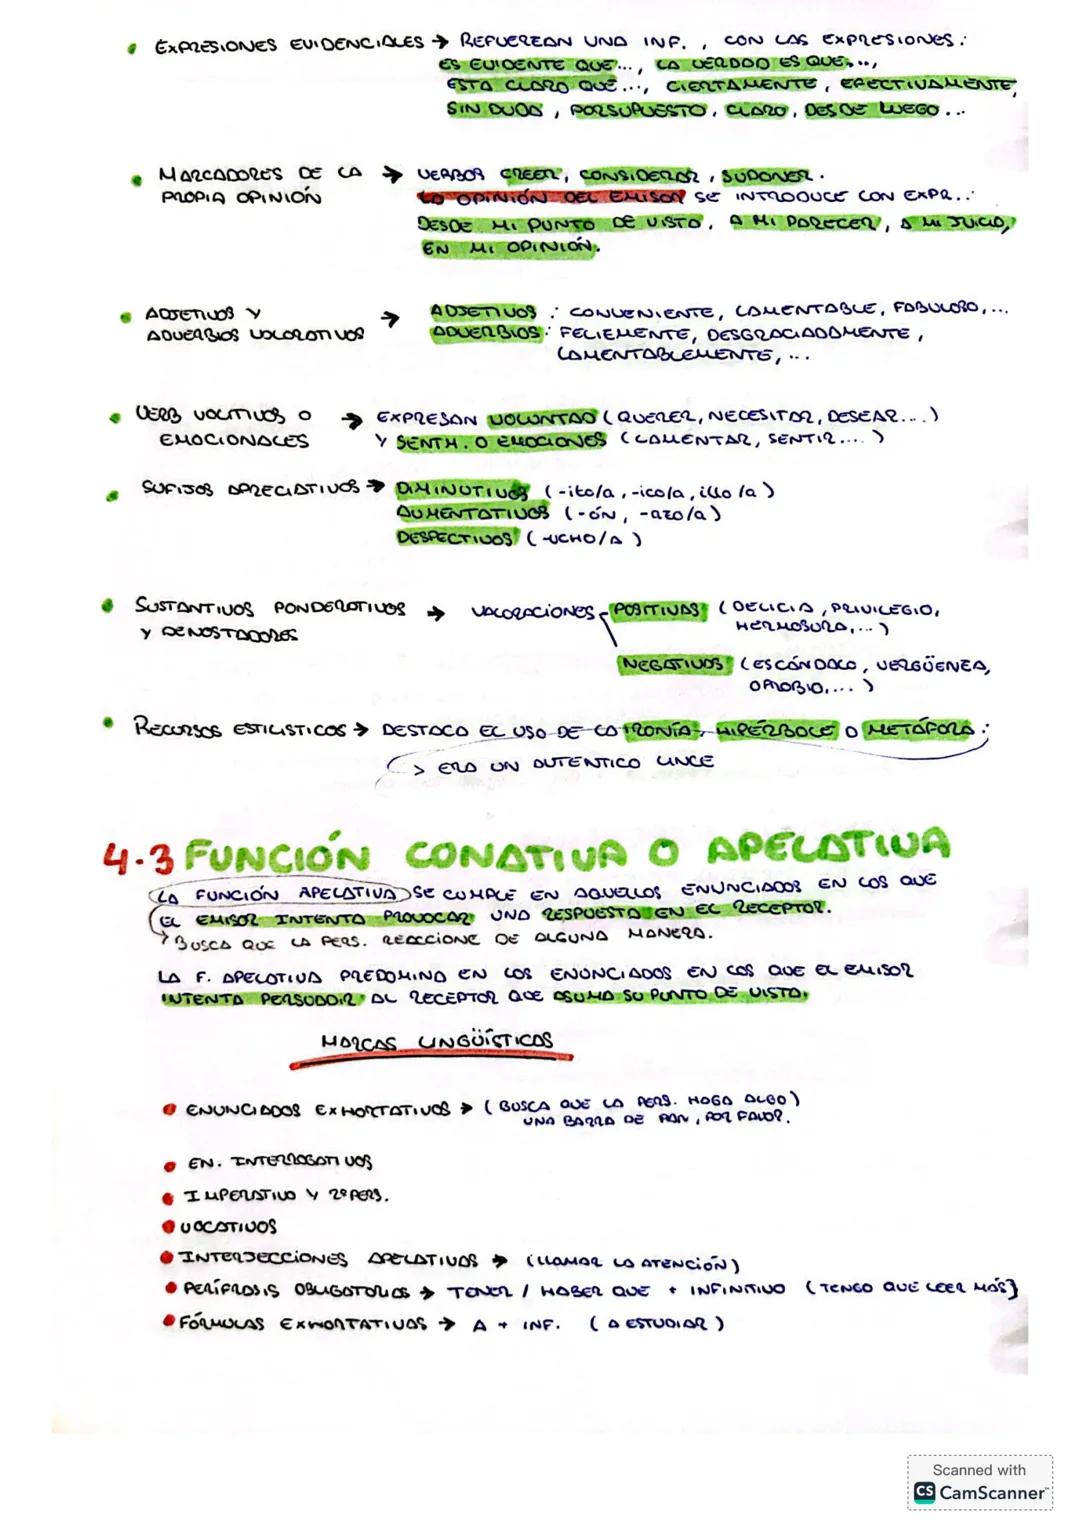 EXPRESIONES EVIDENCIALES → REFUERZAN UNA INF. , CON LAS EXPRESIONES:
ES EVIDENTE QUE..., LA VERDAD ES QUE...,
ESTA CLARO QUE..., CIERTAMENTE, EFECTIVAMENTE,
SIN DUDA, PORSUPUESTO, CLARO, DESDE LUEGO...
MARCADORES DE LA → VERBOS CREER, CONSIDERAR, SUPONER.
PROPIA OPINIÓN
LA OPINIÓN DEL EMISOR SE INTRODUCE CON EXPR..:
DESDE MI PUNTO DE VISTA, A MI PARECER, A MI JUICIO,
EN MI OPINIÓN.
ADJETIVOS Y → ADJETIVOS : CONVENIENTE, LAMENTABLE, FABULOSO,...
ADVERBIOS VALORATIVOS ADVERBIOS: FELIZMENTE, DESGRACIADAMENTE,
LAMENTABLEMENTE,...
VERB VOLITIVOS O → EXPRESAN VOLUNTAD (QUERER, NECESITAR, DESEAR...)
EMOCIONALES Y SENTM. O EMOCIONES (LAMENTAR, SENTIR....)
SUFIJOS APRECIATIVOS → DIMINUTIVOS (-ito/a, -ico/a, illo/a)
AUMENTATIVOS (-ÓN, -AZO/a)
DESPECTIVOS (-UCHO/A)
SUSTANTIVOS PONDERATIVOS → VALORACIONES POSITIVAS (DELICIA, PRIVILEGIO,
Y DENOSTADORES HERMOSURA,...)
NEGATIVOS (ESCÁNDALO, VERGÜENZA,
OPROBIO,...)
RECURSOS ESTILISTICOS → DESTACA EL USO DE LA IRONÍA, HIPÉRBOLE O METÁFORA:
> ERA UN AUTENTICO LINCE
4.3 FUNCIÓN CONATIVA O APELATIVA
LA FUNCIÓN APELATIVA SE CUMPLE EN AQUELLOS ENUNCIADOS EN LOS QUE
EL EMISOR INTENTA PROVOCAR UNA RESPUESTA EN EL RECEPTOR.
> BUSCA QUE LA PERS. REACCIONE DE ALGUNA MANERA.
LA F. APELATIVA PREDOMINA EN LOS ENUNCIADOS EN LOS QUE EL EMISOR
INTENTA PERSUADIR AL RECEPTOR QUE ASUMA SU PUNTO DE VISTA.
MARCAS LINGÜÍSTICAS
ENUNCIADOS EXHORTATIVOS → (BUSCA QUE LA PERS. HAGA ALGO)
UNA BARRA DE PAN, POR FAVOR.
EN. INTERROGATIVOS
IMPERATIVO Y 2ª PERS.
VOCATIVOS
INTERJECCIONES APELATIVAS → (LLAMAR LA ATENCIÓN)
PERÍFRASIS OBLIGATORIAS → TENER / HABER QUE + INFINITIVO (TENGO QUE LEER MÁS)
FÓRMULAS EXHORTATIVAS → A + INF. (A ESTUDIAR)
Scanned with
CS CamScanner